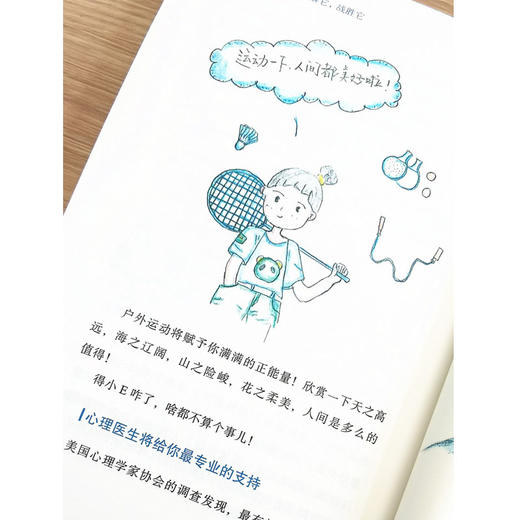 它，战胜它
运动一下，人间都美好啦！
户外运动将赋予你满满的正能量！欣赏一下天之高
远，海之辽阔，山之险峻，花之柔美，人间是多么的
值得！
得小E咋了，啥都不算个事儿！
心理医生将给你最专业的支持
美国心理学家协会的调查发现，最有